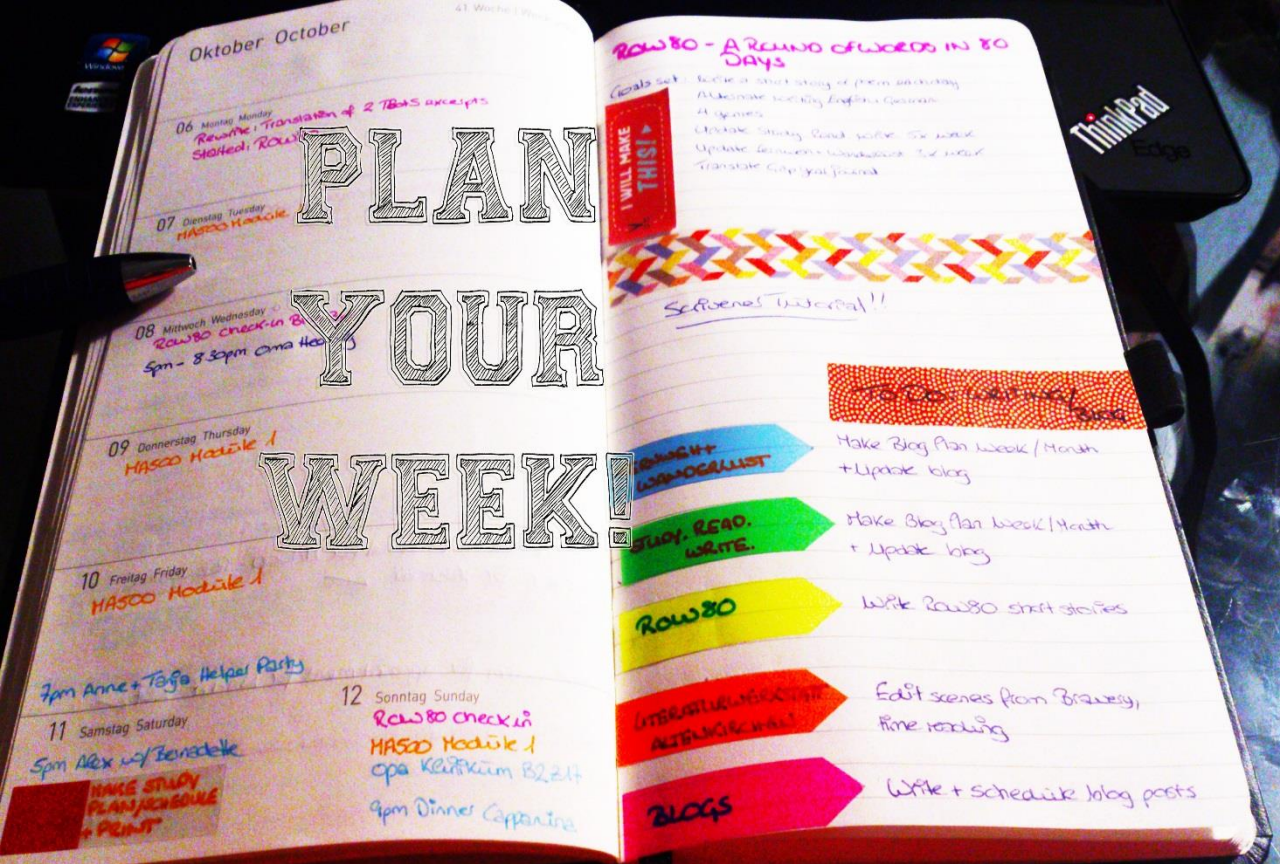 Oktober October
41 Woche
06 Montag Monday
Rewrite: Translation of 2 Texts excerpts
Started: ROW
07 Dienstag Tuesday
MA500 Module
08 Mittwoch Wednesday
ROW80 Check-in
5pm - 8:30pm Oma
09 Donnerstag Thursday
MA500 Module 1
10 Freitag Friday
MA500 Module 1
7pm Anne + Tanja Helper Party
11 Samstag Saturday
5pm Alex w/ Bernadette
MAKE STUDY
PLAN/SCHEDULE
+ PRINT
12 Sonntag Sunday
ROW80 Check in
MA500 Module 1
Opa Klinikum B2.317
9pm Dinner
PLAN
YOUR
WEEK!
ROW80 - A ROUND OF WORDS IN 80
DAYS
Goals set: Write a short story or poem each day
Alternate writing English + German
4 genres
Update Study. Read. Write. 5x week
Update Fernweh + Wanderlust 3x week
Translate
I WILL MAKE
THIS!
Scrivener Tutorial!!
TO DO: WRITING/
BLOG
FERNWEH +
WANDERLUST
Make Blog Plan Week/Month
+ Update blog
STUDY. READ.
WRITE.
Make Blog Plan Week/Month
+ Update blog
ROW80
Write ROW80 short stories
LITERATURWERKSTATT
ALTENKIRCHEN
Edit scenes from Bravery,
fine reading
BLOGS
Write + schedule blog posts
Windows
ThinkPad
Edge